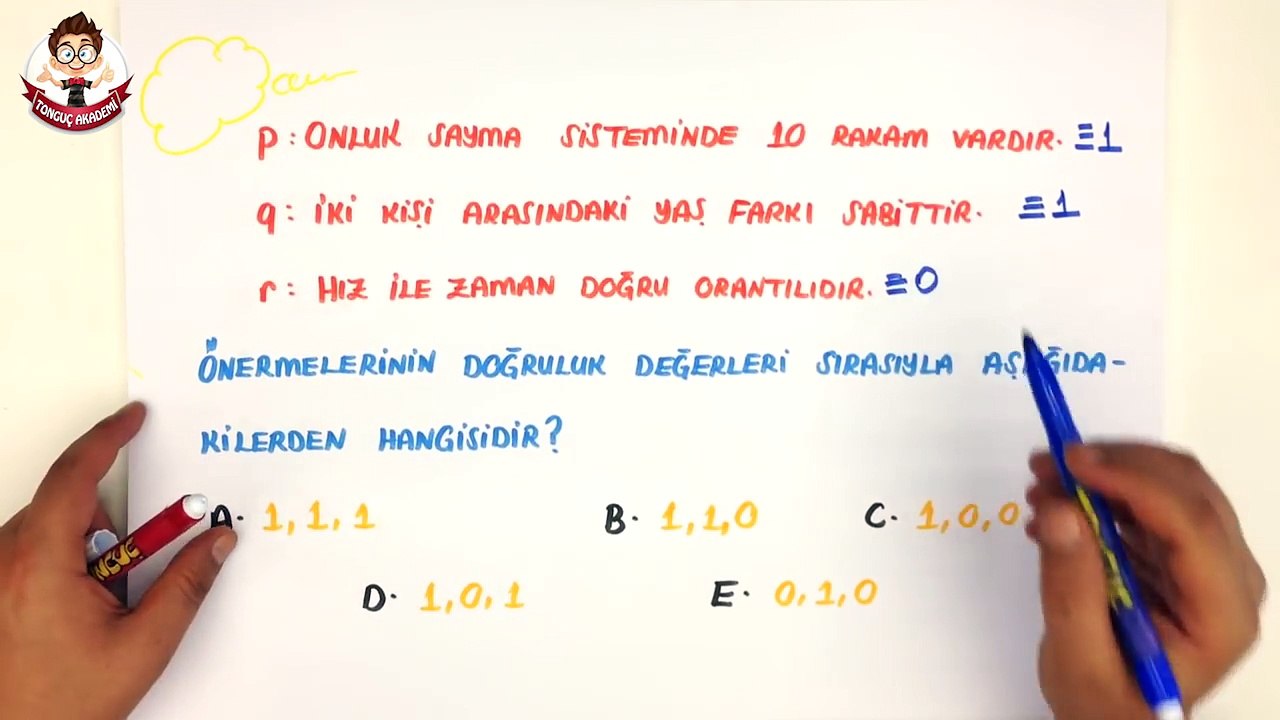 TONGUÇ AKADEMİ
p: ONLUK SAYMA SİSTEMİNDE 10 RAKAM VARDIR. ≡1
q: İKİ KİŞİ ARASINDAKİ YAŞ FARKI SABİTTİR. ≡1
r: HIZ İLE ZAMAN DOĞRU ORANTILIDIR. ≡0
ÖNERMELERİNİN DOĞRULUK DEĞERLERİ SIRASIYLA AŞAĞIDA-
KİLERDEN HANGİSİDİR?
A. 1, 1, 1 B. 1, 1, 0 C. 1, 0, 0
D. 1, 0, 1 E. 0, 1, 0